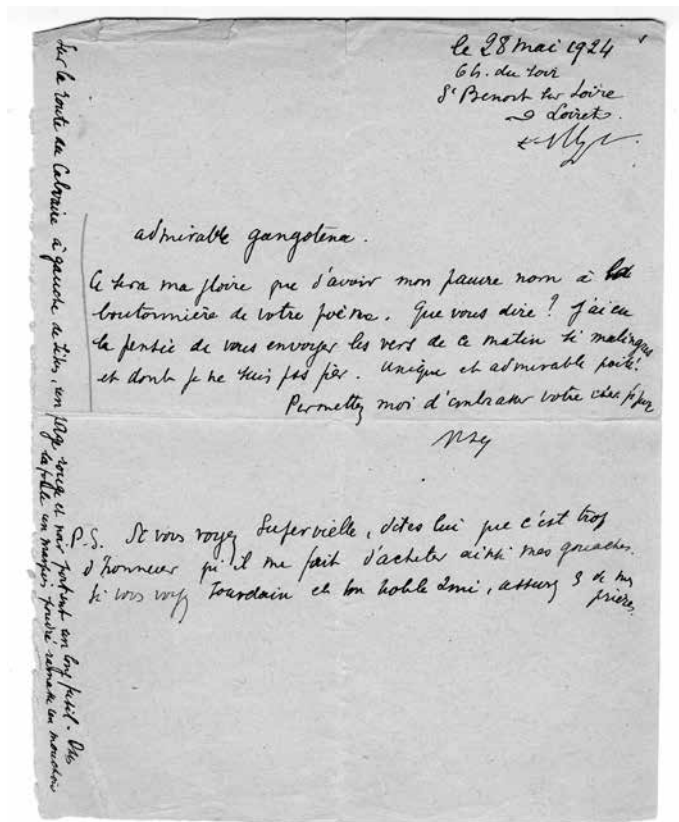 le 28 mai 1924
6 h. du soir
St Benoit sur Loire
Loiret
admirable gangotena.
Ce sera ma gloire que d'avoir mon pauvre nom à la
boutonnière de votre poème. Que vous dire ? j'ai eu
la pensée de vous envoyer les vers de ce matin si malingres
et dont je ne suis pas fier. Unique et admirable poète !
Permettez moi d'embrasser votre cher
P.S. Si vous voyez Supervielle, dites lui que c'est trop
d'honneur qu'il me fait d'acheter ainsi mes gouaches.
Si vous voyez Jourdain et son noble ami, assurez de mes
prières.
Sur la route du Calvaire à gauche de un page rouge et noir portant un long fusil. Dans
la un marquis poudré ramasse un mouchoir